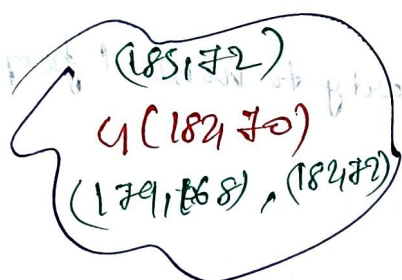 (185,72)
C1(182,70)
(179,68), (182,72)